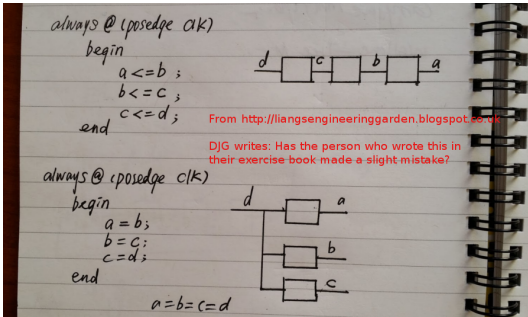 always @ (posedge clk)
begin
a <= b ;
b <= c ;
c <= d ;
end
d c b a
From http://liangsengineeringgarden.blogspot.co.uk
DJG writes: Has the person who wrote this in
their exercise book made a slight mistake?
always @ (posedge clk)
begin
a = b ;
b = c ;
c = d ;
end
d a
b
c
a = b = c = d